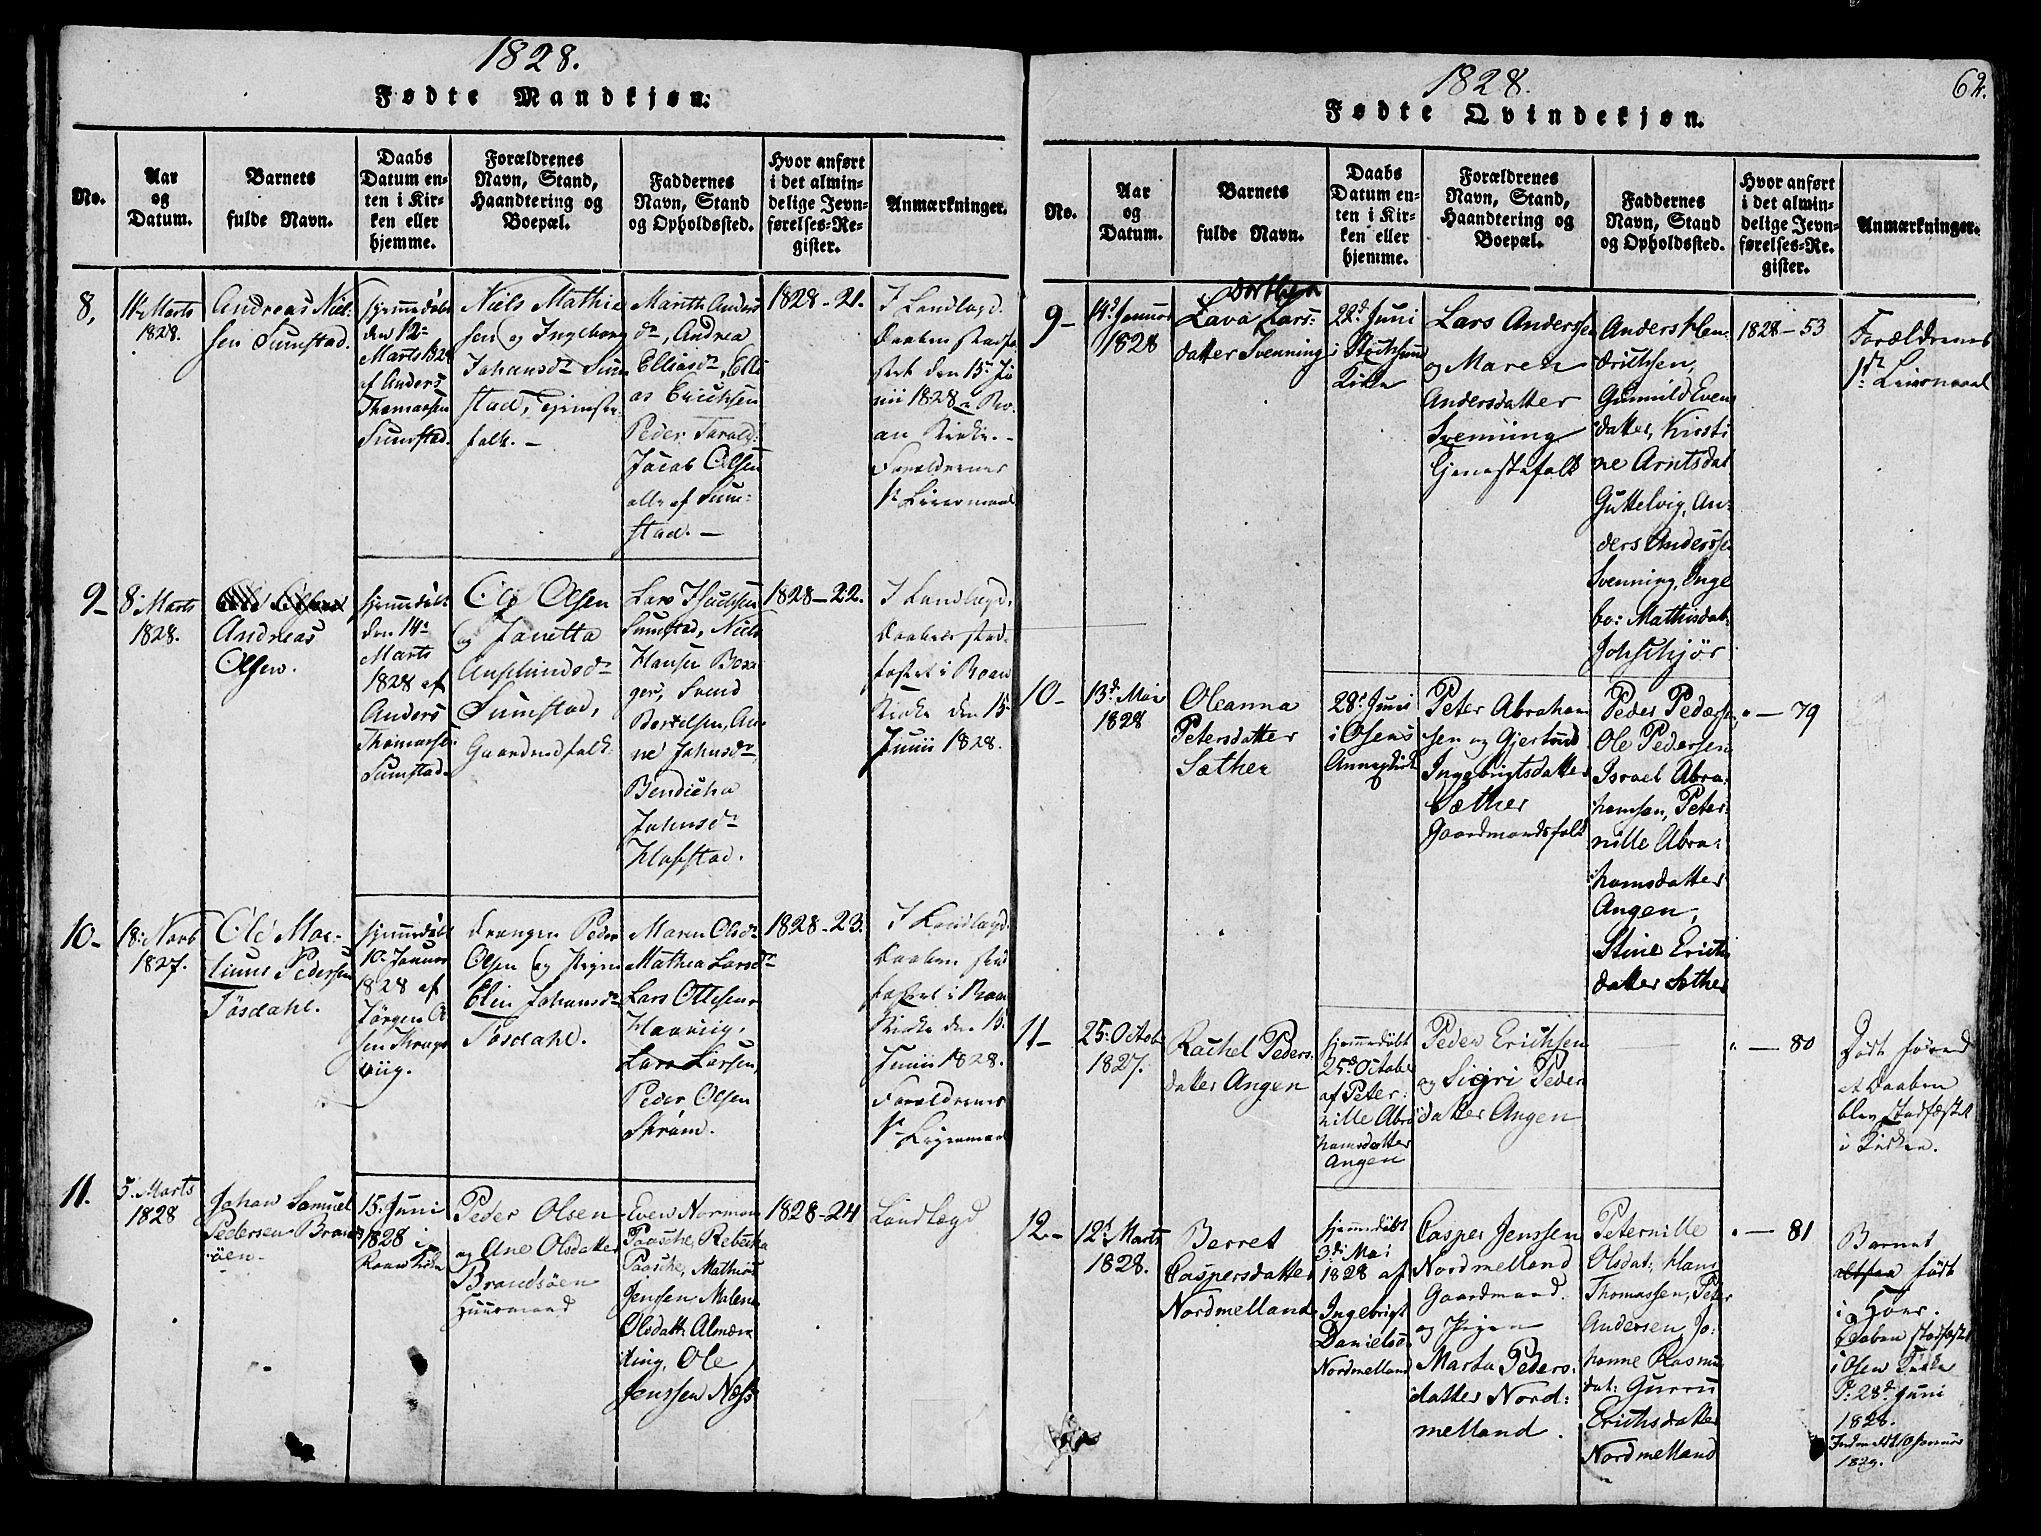 1828.
Fødte Mandkjøn.
No.
Aar
og
Datum.
Barnets
fulde Navn.
Daabs
Datum en-
ten i Kir-
ken eller
hjemme.
Forældrenes
Navn, Stand,
Haandtering og
Boepæl.
Faddernes
Navn, Stand
og Opholdssted.
Hvor anført
i det almin-
delige Jevn-
førelses-Re-
gister.
Anmærkninger.
8,
11te Marts
1828.
Andreas Niel-
sen Sumstad.
hjemmedøbt
den 12te
Marts 1828
af Anders
Thomassen
Sumstad.
Niels Mathie
sen og Ingeborg
Johansdr Sum
stad, Tjeneste
folk. -
Marith Anders
dr, Andrea
Elliasdr, Elli
as Erichsen
Peder Tarald.
Jacob Olsen
alle af Sum-
stad. -
1828-21.
I Landlagd.
Daaben stadfæ
stet den 15 Ju
nii 1828 i Ro-
an Kirke. -
Forældrenes
1te Leiermaal
9-
8 Marts
1828.
Andreas
Olsen.
hjemmedøbt
den 14de
Marts
1828 af
Anders
Thomassen
Sumstad.
Ole Olsen
og Janetta
Sumstad,
Gaardmandfolk.
Lars
Sumstad, Niels
Hansen
Svend
Bertelsen, An
ne Johnsdr
Bendicha
Johnsdr
Hofstad.
1828-22.
I Landlagd.
Daaben stad-
fæstet i Roan
Kirke den 15
Junii 1828.
10-
18 Novb
1827.
Ole Mar-
tinus Pedersen
Tøsdahl.
hjemmedøbt
10 Januar
1828 af
Jørgen O
sen
viig.
drengen Peder
Olsen og Pigen
Elen Johansdr
Tøsdahl.
Maren Olsdr
Mathea Larsdr
Lars Ottesen
Lars Larsen,
Peder Olsen
Strøm.
1828-23.
I Landlagd
Daaben stad
fæstet i Roan
Kirke den 15
Junii 1828.
Forældrenes
1te Leiermaal
11.
5 Marts
1828
Johan Samuel
Pedersen Brand
søen.
15 Juni
1828 i
Roan Kirke
Peder Olsen
og Ane Olsdatter
Brandsøen
Huusmand
Even Norman
Paasche, Rebecka
Paasche, Mathias
Jensen Malena
Olsdattr Almen
ning, Ole
Jenssen Næss
1828-24
Landlægd
1828.
62.
Fødte Qvindekjøn.
No.
Aar
og
Datum.
Barnets
fulde Navn.
Daabs
Datum en-
ten i Kir-
ken eller
hjemme.
Forældrenes
Navn, Stand,
Haandtering og
Boepæl.
Faddernes
Navn, Stand
og Opholdssted.
Hvor anført
i det almin-
delige Jevn-
førelses-Re-
gister.
Anmærkninger.
9-
14d Januar
1828
Dorthea
Lava Lars-
datter Svenning
22d Juni
i Stochsund
Kirke
Lars Anderssen
og Maren
Andersdatter
Svenning
Tjenestefolk
Anders Hen-
drichsen,
Gunnild Even
datter, Kirsti
ne Arntsdat
Guttelvig, An-
ders Anderssen
Svenning, Inge
bo: Mathisdat:
1828-53
Forældrenes
1te Leiermaal
10-
13d Mai
1828
Oleanna
Petersdatter
Sæther
28d Juni
i Osens
Annexkirke
Peter Abraham
sen og Gjertrud
Ingebrigtsdatter
Sæther
Gaardmandsfolk
Peder Pedersen
Ole Pedersen
Israel Abra-
hamsen, Peter-
nille Abra-
hamsdatter
Angen,
Stine Erichs
datter Sæther
" - 79
11-
25 Octob
1827.
Rachel Peders-
datter Angen
hjemmedøbt
25d Octobr
af Peter-
nille Abra
hamsdatter
Angen
Peder Erichsen
og Sigri Peder
datter Angen
" - 80
Død førend
at Daaben
blev stadfæstet
i Kirken.
12-
12d Marts
1828.
Berret
Caspersdatter
Nordmelland
hjemmedøbt
3d Mai
1828 af
Ingebrigt
Danielsd
Nordmelland
Casper Jenssen
Nordmelland
Gaardmand.
og Pigen
Marta Peders-
datter Nord-
melland.
Peternille
Olsdat: Hans
Thomassen, Peter
Andersen, Jo-
hanne Rasmu
dat: Gurru
Erichsdatter
Nordmelland
" - 81
Barnet
altsaa født
i Hoer.
Daaben stadfæstet
i Osen Kirke
D: 28d Juni
1828.
Indmeldt 10 Januar
1829.